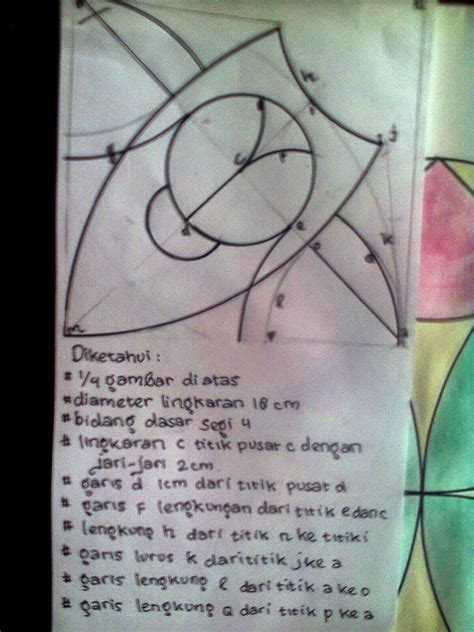 h
i
j
g
b
c
f
d
e
k
l
m
Diketahui :
# 1/4 gambar di atas
# diameter lingkaran 18 cm
# bidang dasar segi 4
# lingkaran c titik pusat c dengan
jari-jari 2cm.
# garis d 1cm dari titik pusat d
# garis F lengkungan dari titik e dan c
# lengkung h dari titik n ke titik i
# garis lurus k dari titik j ke a
# garis lengkung l dari titik a ke o
# garis lengkung Q dari titik p ke a